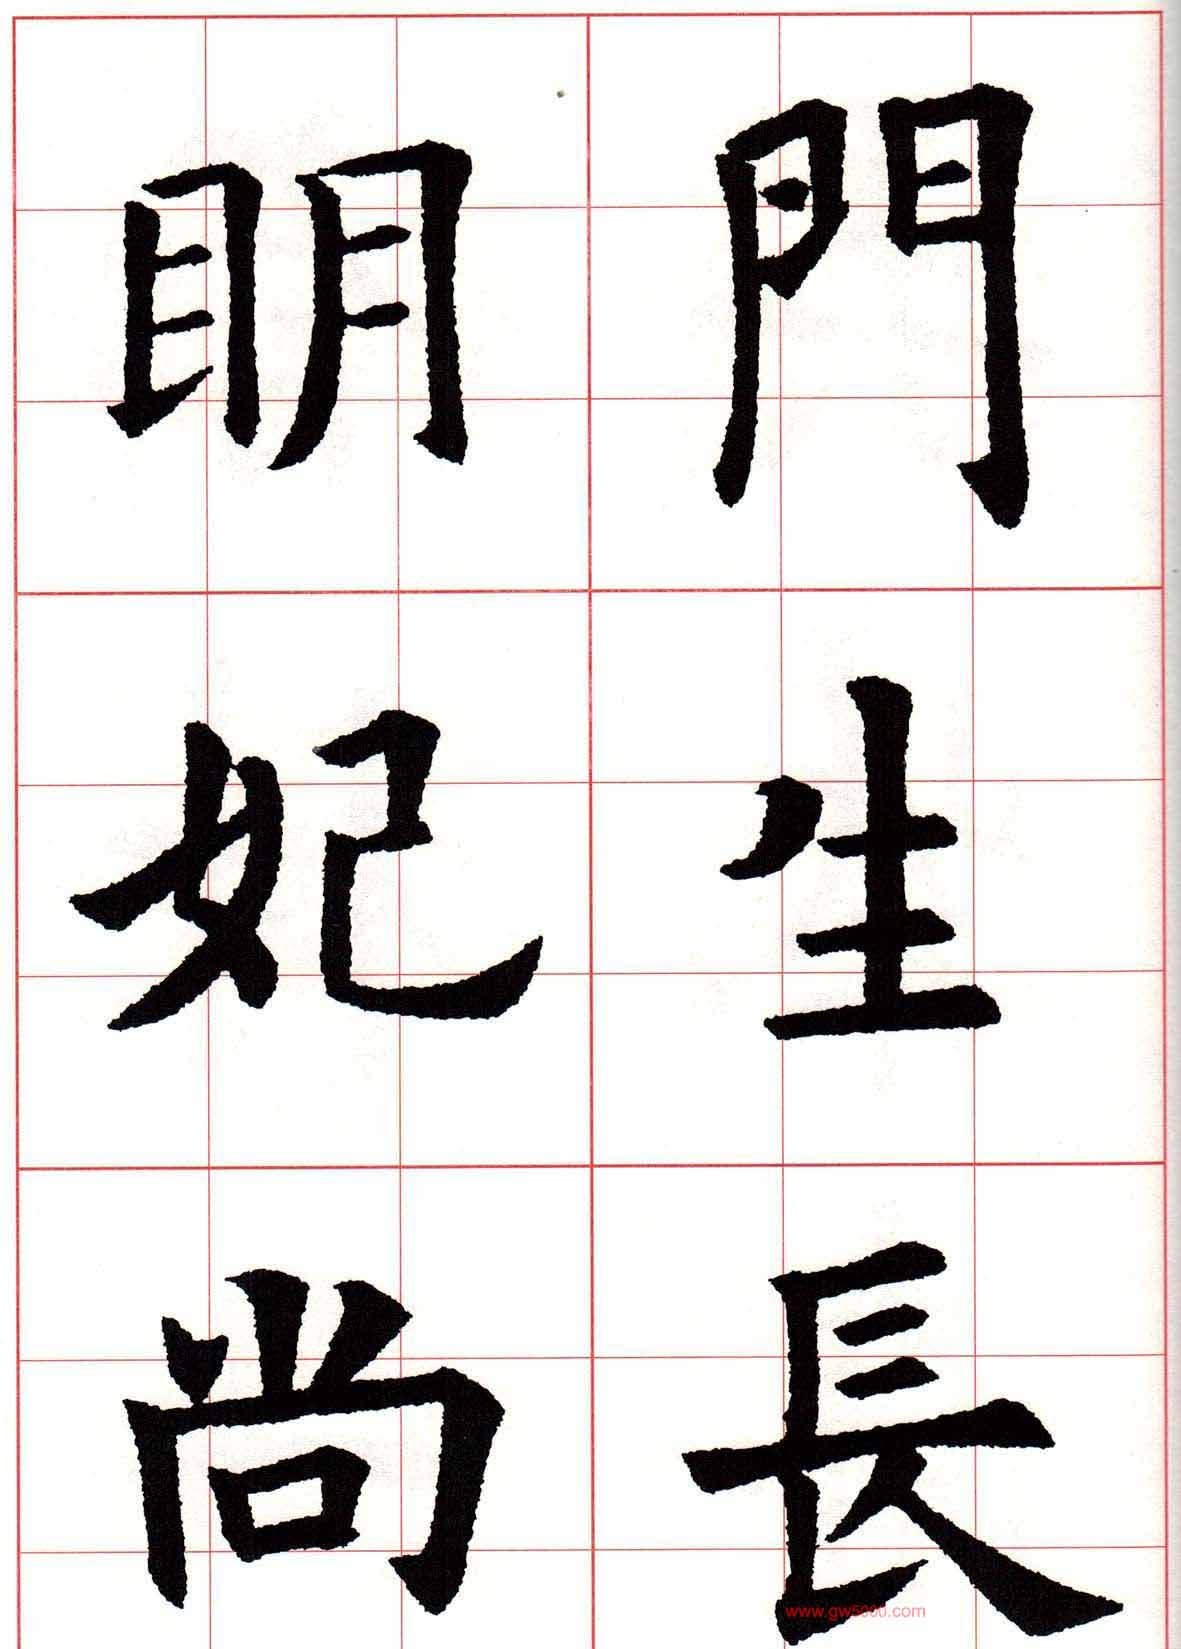 門生長
眀妃尚
www.gw5000.com